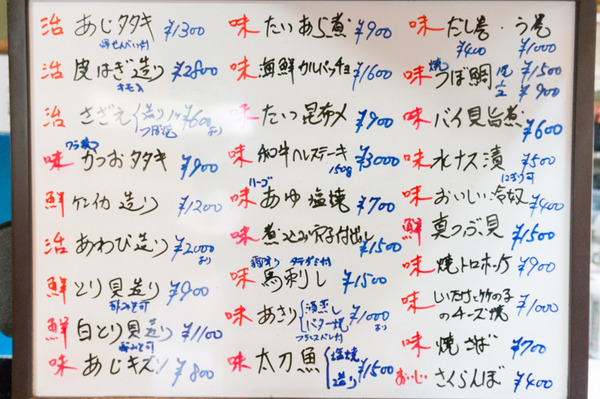 活 あじタタキ ¥1300
骨せんべい付
活 皮はぎ造り ¥2800
キモ入
活 さざえ 造り 1ヶ¥600より
つぼ焼
ワラ焼
味 かつおタタキ ¥900
鮮 ケンイカ 造り ¥1200
活 あわび造り ¥2000より
鮮 とり貝造り ¥900
酢みそ可
鮮 白とり貝造り ¥1100
酢みそ可
味 あじキズシ ¥800
味 たいあら煮 ¥900
味 海鮮カルパッチョ ¥1600
味 たい昆布〆 ¥900
味 和牛ヘレステーキ ¥3000
150g
ハーブ
味 あゆ塩焼 ¥700
味 煮込み穴子付出し ¥1500
味 馬刺し ¥1500
味 あさり 酒蒸し バター焼 ¥1000より
フランスパン付
味 太刀魚 塩焼 造り ¥1500
味 だし巻・う巻
¥400 ¥1000
味 焼うぼ鯛 ¥1500
¥900
味 バイ貝旨煮 ¥600
味 水ナス漬 ¥500
味 おいしい冷奴 ¥400
鮮 真つぶ貝 ¥1500
味 焼トロホッケ ¥900
味 しいたけと竹の子のチーズ焼 ¥1000
味 焼さば ¥700
おいしい さくらんぼ ¥400